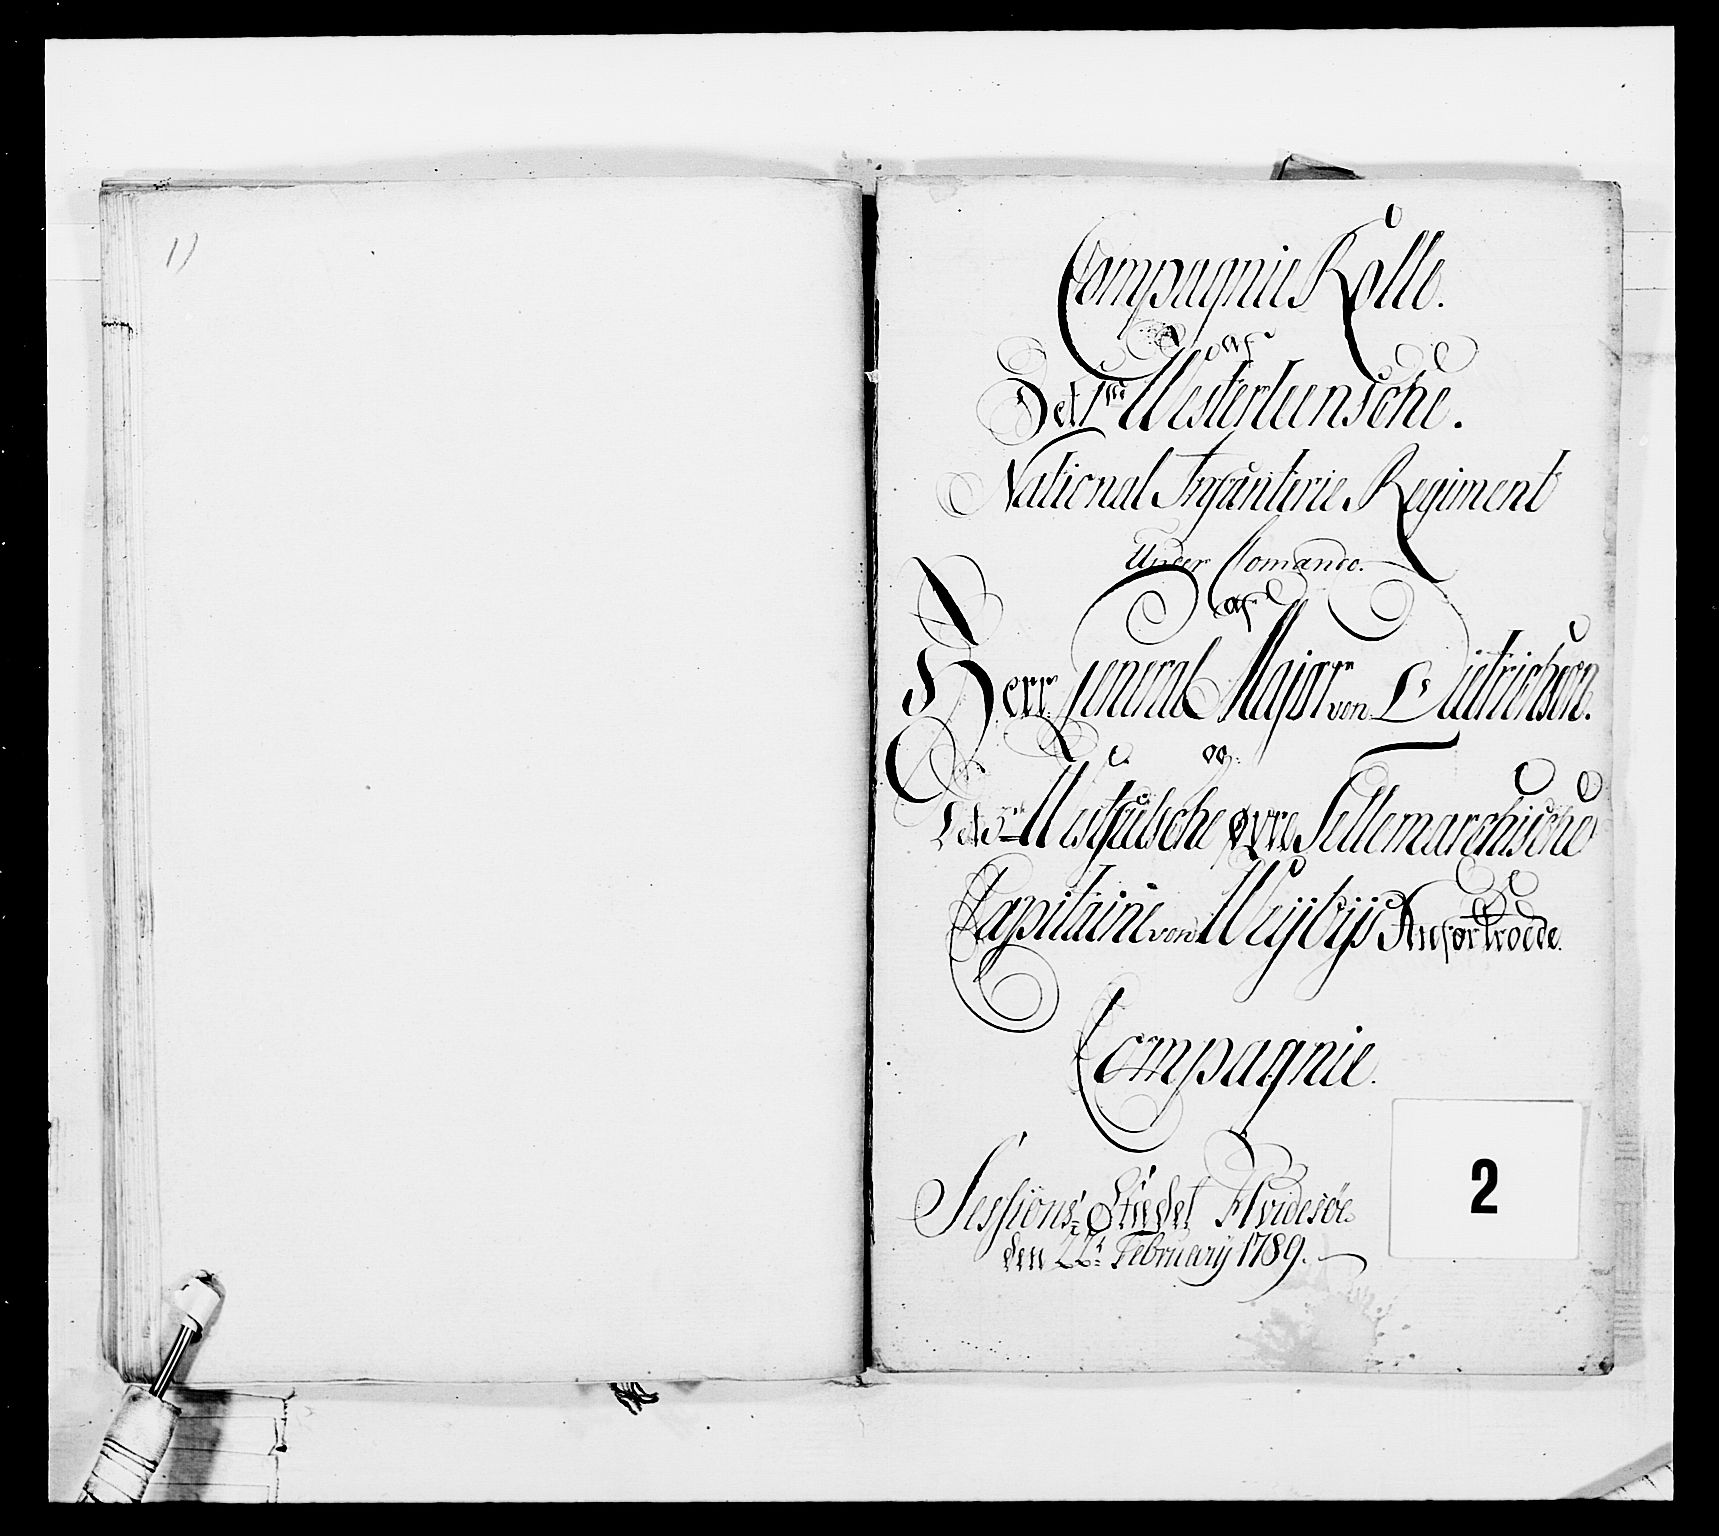 1)
Compagnie Rolle.
af
Det 1ste Westerlensche.
National Infanterie Regiment
Under Comando.
af
Herr General Major von Dietrichson.
og:
Det Westfielsche øvre Tellemarchische
Capitaine von Weybÿs Anfortroede.
Compagnie.
Sessions: Stædet Hvidesöe
den 22t Februarÿ 1789.
2